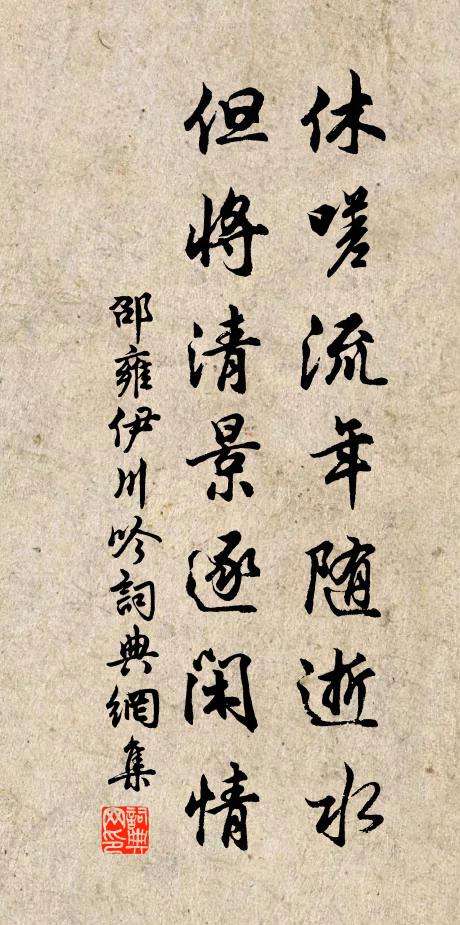 休嗟流年随逝水
但将清景逐闲情
邵雍伊川吟詞典網集
詞典网印